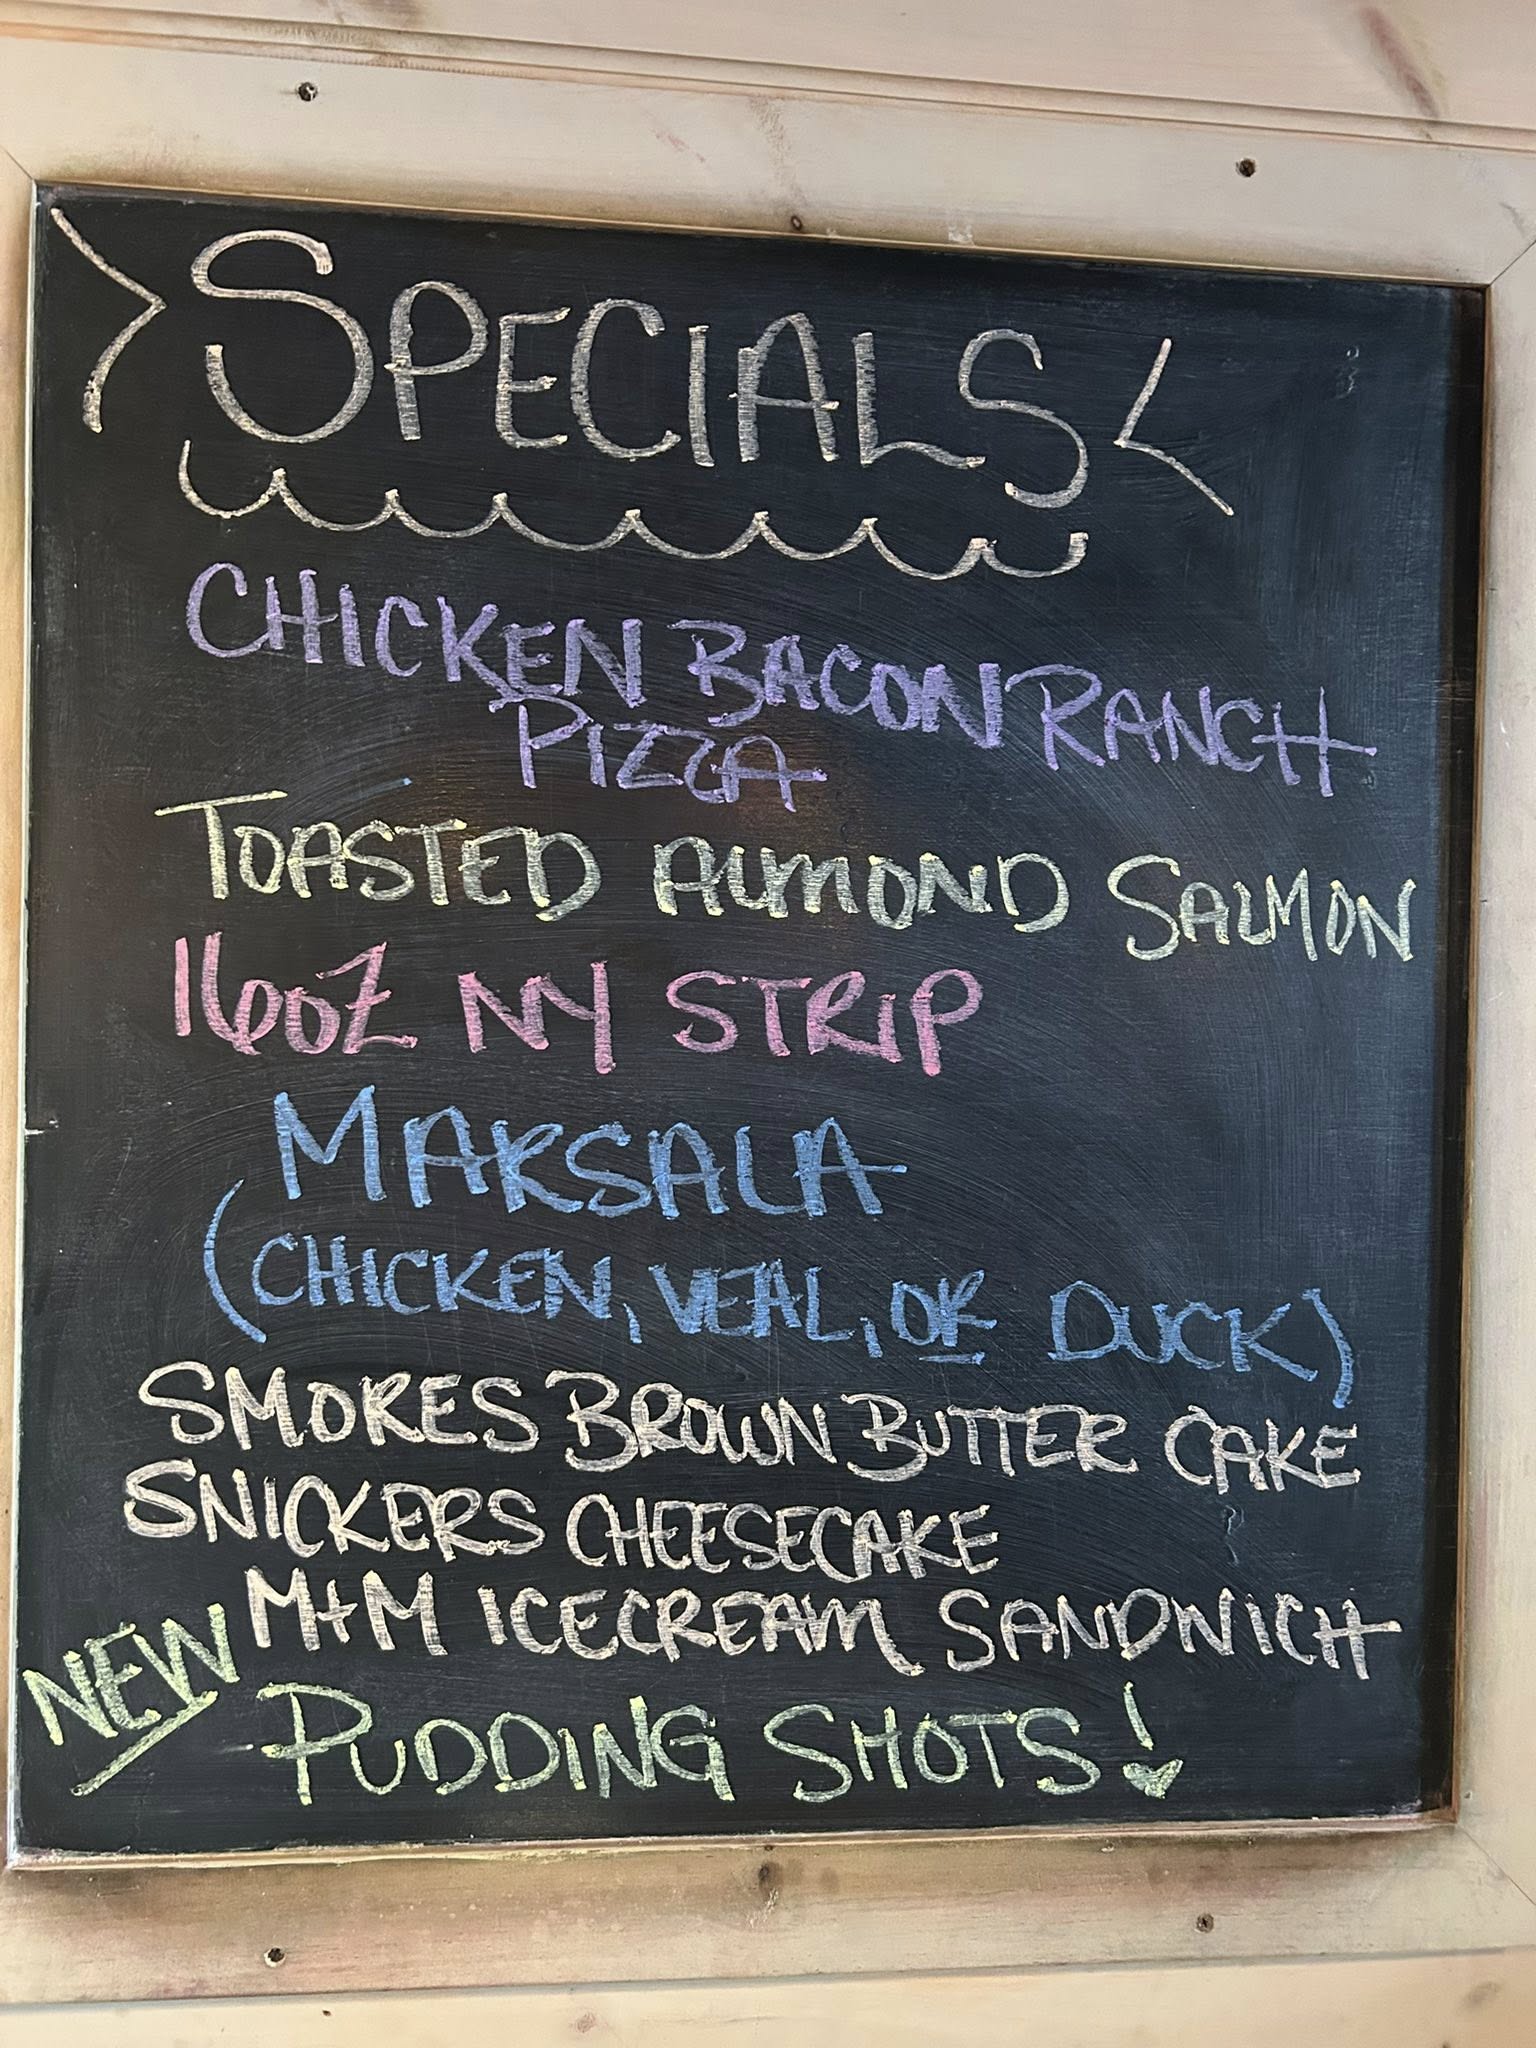 SPECIALS
CHICKEN BACON RANCH
PIZZA
TOASTED ALMOND SALMON
16oz NY STRIP
MARSALA
(CHICKEN, VEAL, OR DUCK)
SMORES BROWN BUTTER CAKE
SNICKERS CHEESECAKE
M+M ICECREAM SANDWICH
NEW PUDDING SHOTS!